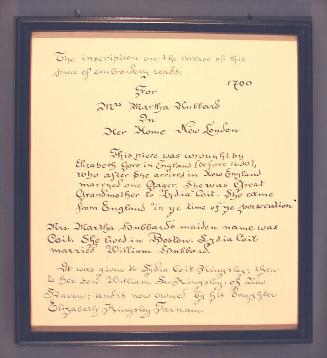 The inscription on the reverse of this
piece of embroidery reads:
1700
For
Mrs Martha Hubbard
In
Her Home New London
This piece was wrought by
Elizabeth Gore in England (before 1630),
who after she arrives in New England
married one Gager. She was Great
Grandmother to Lydia Coit. She came
from England "in ye time of ye persecution"
Mrs. Martha Hubbard's maiden name was
Coit. She lived in Boston. Lydia Coit
married William Hubbard.
It was given to Lydia Coit Kingsley; then
to her son William L. Kingsley, of New
Haven; and is now owned by his daughter
Elizabeth Kingsley Farnam.